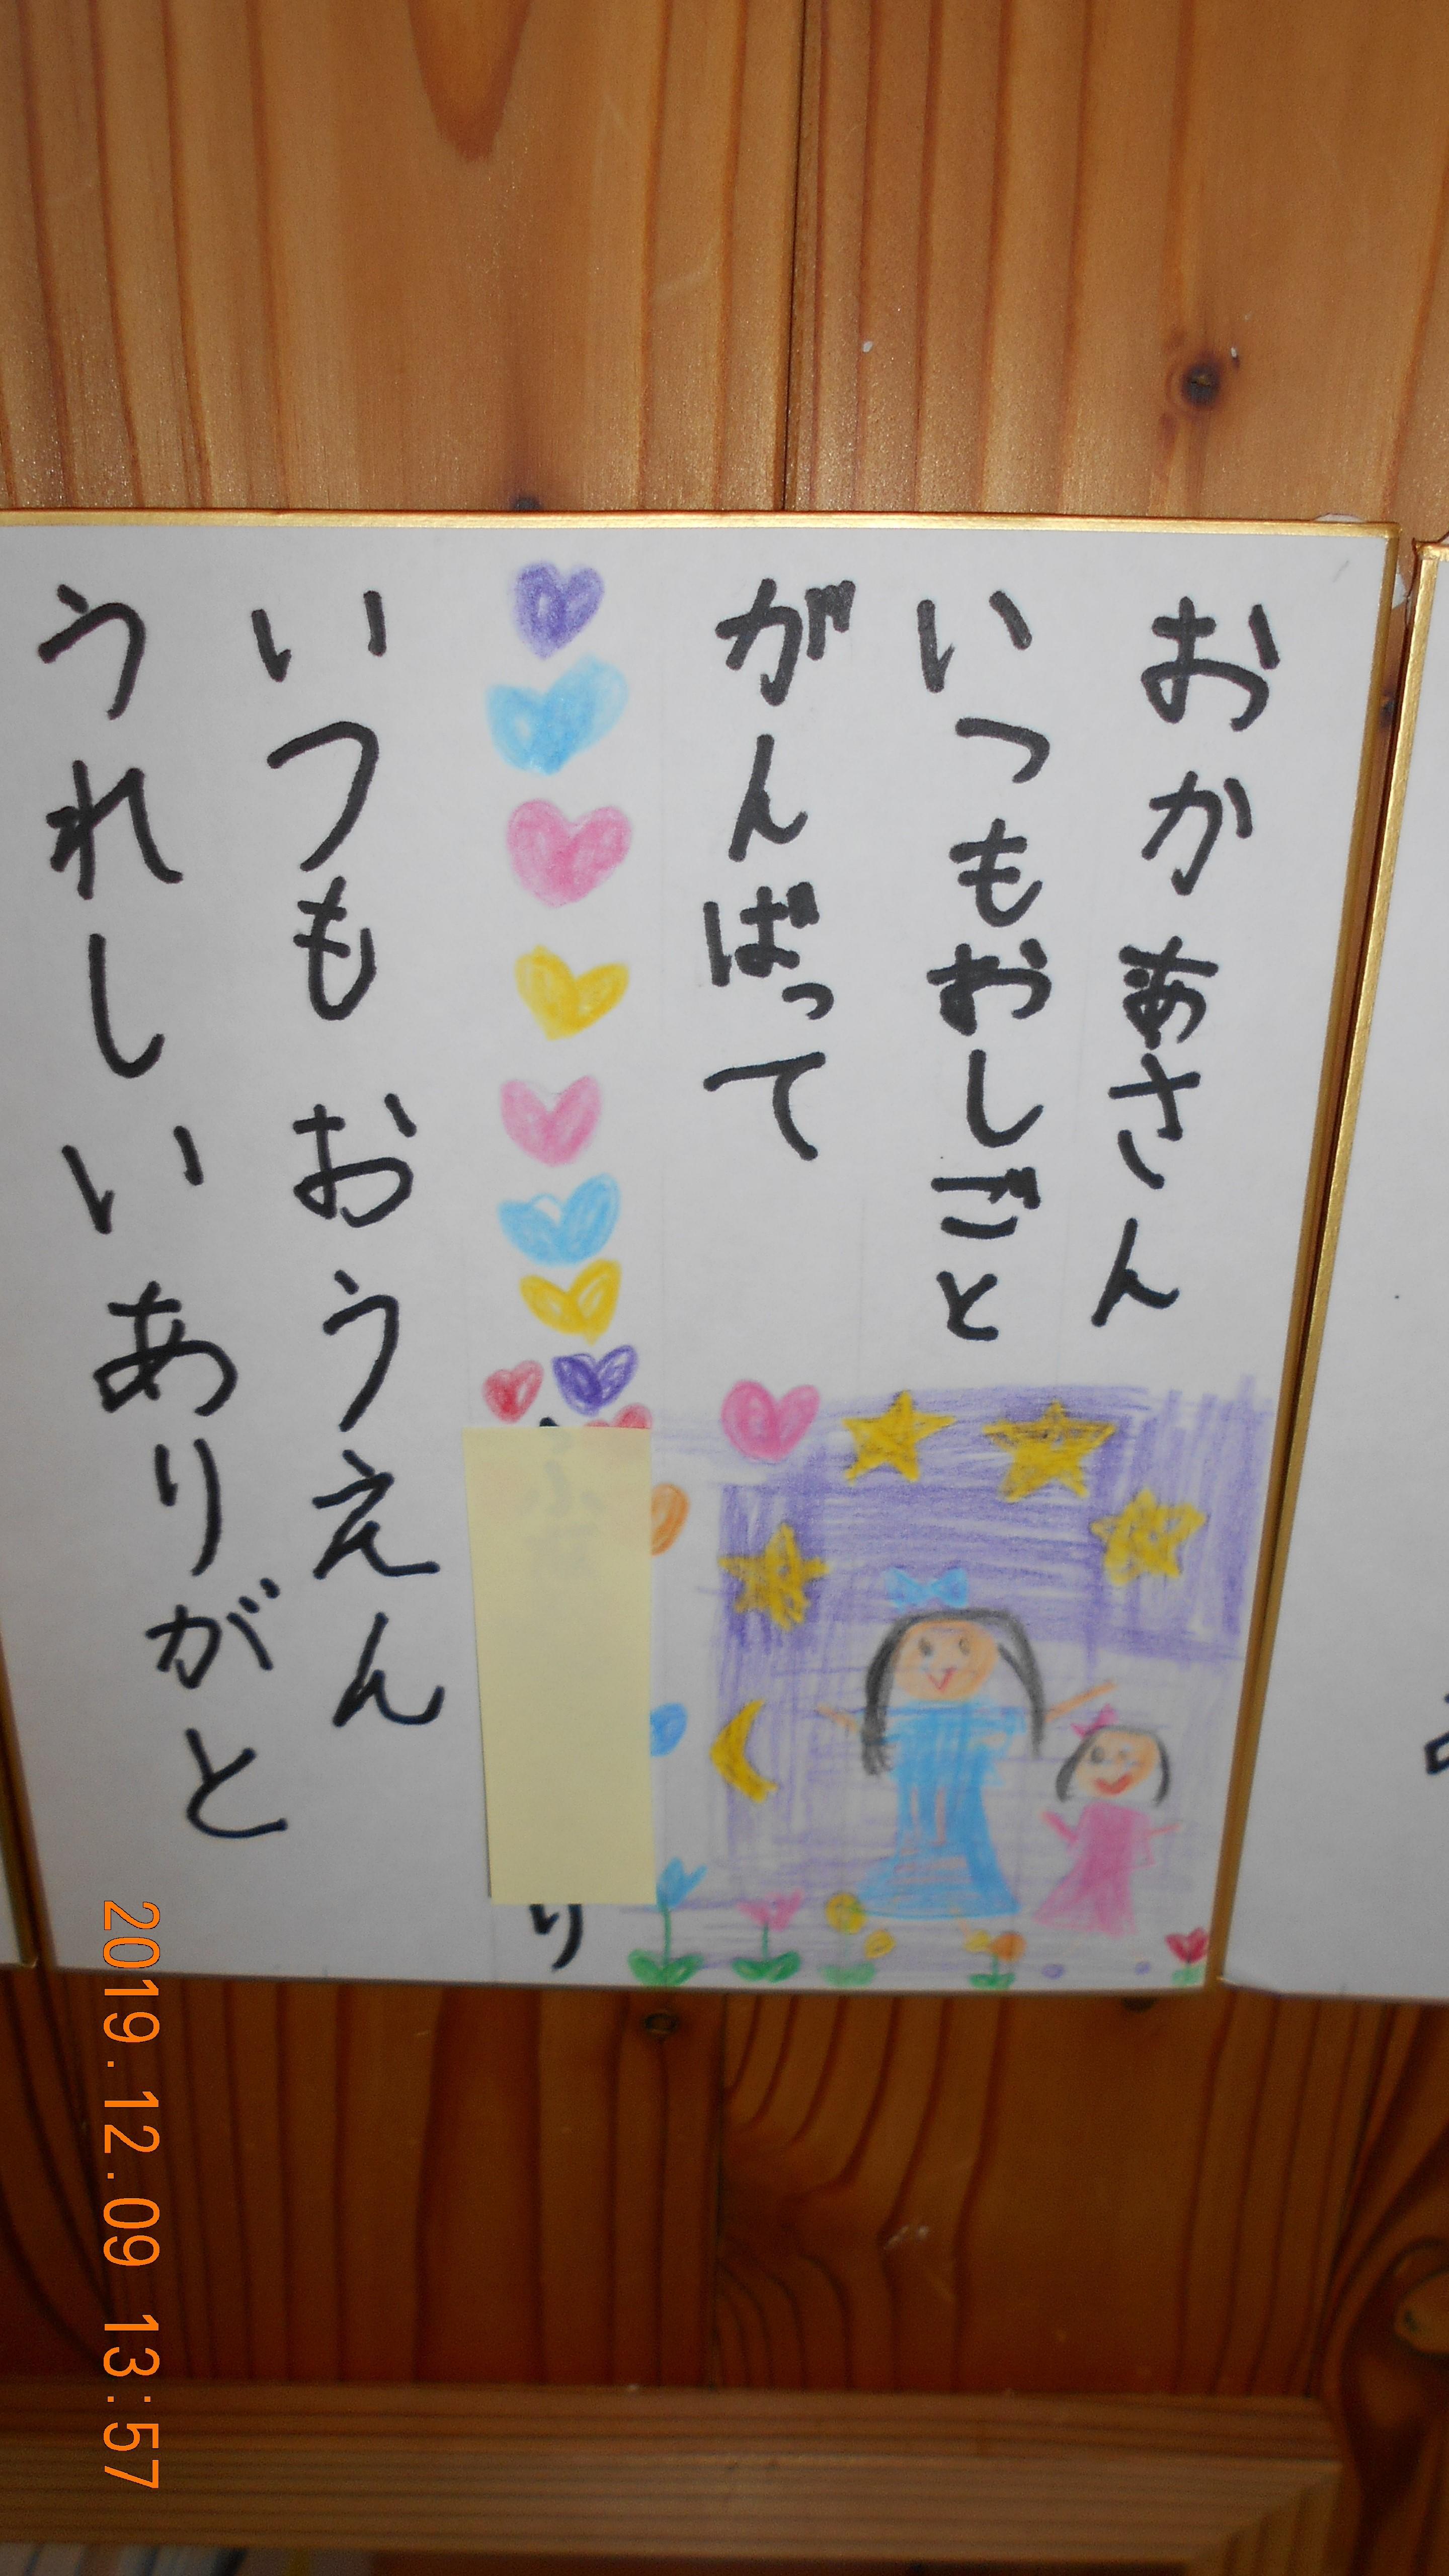 おかあさん
いつもおしごと
がんばって
り
いつもおうえん
うれしいありがと
2019.12.09 13:57